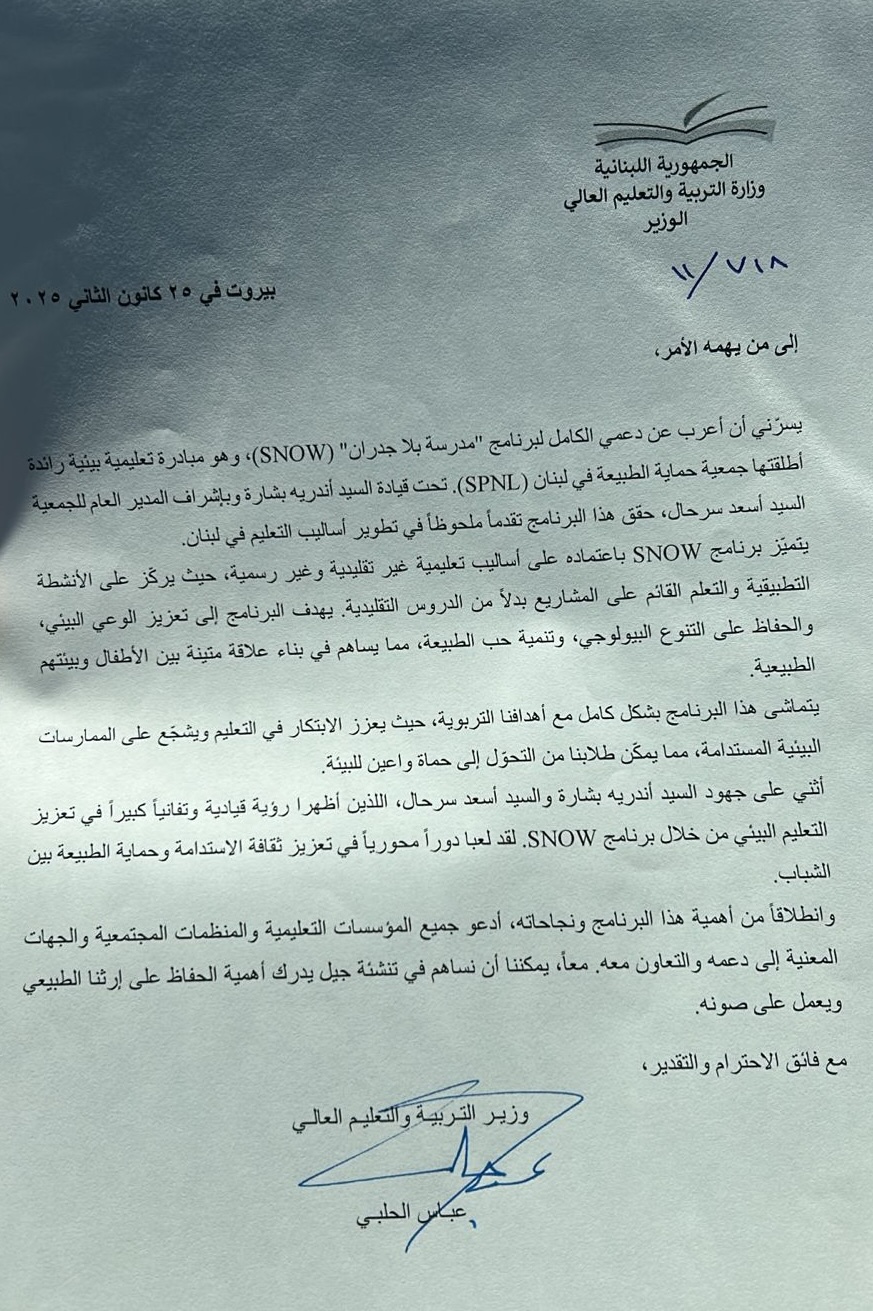 الجمهورية اللبنانية
وزارة التربية والتعليم العالي
الوزير
١١/٧١٨
بيروت في ٢٥ كانون الثاني ٢٠٢٥
إلى من يهمه الأمر،
يسرّني أن أعرب عن دعمي الكامل لبرنامج "مدرسة بلا جدران" (SNOW)، وهو مبادرة تعليمية بيئية رائدة
أطلقتها جمعية حماية الطبيعة في لبنان (SPNL). تحت قيادة السيد أندريه بشارة وبإشراف المدير العام للجمعية
السيد أسعد سرحال، حقق هذا البرنامج تقدماً ملحوظاً في تطوير أساليب التعليم في لبنان.
يتميّز برنامج SNOW باعتماده على أساليب تعليمية غير تقليدية وغير رسمية، حيث يركّز على الأنشطة
التطبيقية والتعلم القائم على المشاريع بدلاً من الدروس التقليدية. يهدف البرنامج إلى تعزيز الوعي البيئي،
والحفاظ على التنوع البيولوجي، وتنمية حب الطبيعة، مما يساهم في بناء علاقة متينة بين الأطفال وبيئتهم
الطبيعية.
يتماشى هذا البرنامج بشكل كامل مع أهدافنا التربوية، حيث يعزز الابتكار في التعليم ويشجّع على الممارسات
البيئية المستدامة، مما يمكّن طلابنا من التحوّل إلى حماة واعين للبيئة.
أثني على جهود السيد أندريه بشارة والسيد أسعد سرحال، اللذين أظهرا رؤية قيادية وتفانياً كبيراً في تعزيز
التعليم البيئي من خلال برنامج SNOW. لقد لعبا دوراً محورياً في تعزيز ثقافة الاستدامة وحماية الطبيعة بين
الشباب.
وانطلاقاً من أهمية هذا البرنامج ونجاحاته، أدعو جميع المؤسسات التعليمية والمنظمات المجتمعية والجهات
المعنية إلى دعمه والتعاون معه. معاً، يمكننا أن نساهم في تنشئة جيل يدرك أهمية الحفاظ على إرثنا الطبيعي
ويعمل على صونه.
مع فائق الاحترام والتقدير،
وزير التربية والتعليم العالي
عباس الحلبي